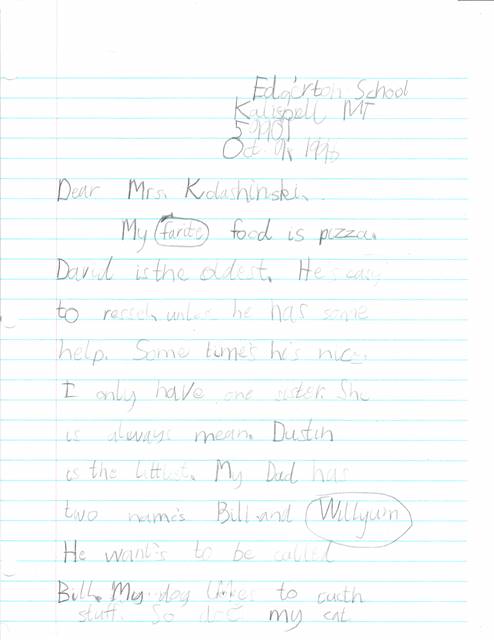 Edgerton School
Kalispell MT
59901
Oct. 9, 1996
Dear Mrs. Kolashinski,
My farite food is pizza.
David is the oldest. He's easy
to ressel, unless he has some
help. Some time's he's nice.
I only have one sister. She
is always mean. Dustin
is the littlest. My Dad has
two name's Bill and Willyum
He want's to be called
Bill. My dog likes to cacth
stuff. So does my cat